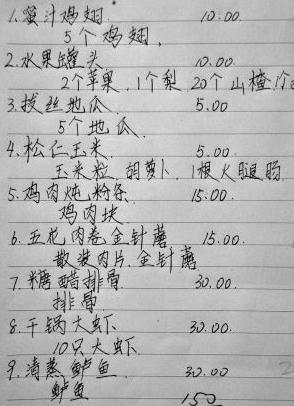 1.蜜汁鸡翅. 10:00.
5个鸡翅.
2.水果罐头 10.00.
2个苹果,1个梨 20个山楂
3.拔丝地瓜. 5.00
5个地瓜.
4.松仁玉米. 5.00.
玉米粒.胡萝卜.1根火腿肠
5.鸡肉炖粉条 15:00.
鸡肉块.
6.五花肉卷金针蘑 15.00.
散装肉片.金针蘑
7.糖醋排骨 30.00.
排骨
8.干锅大虾 30.00.
10只大虾
9.清蒸鲈鱼 30.00
鲈鱼 150